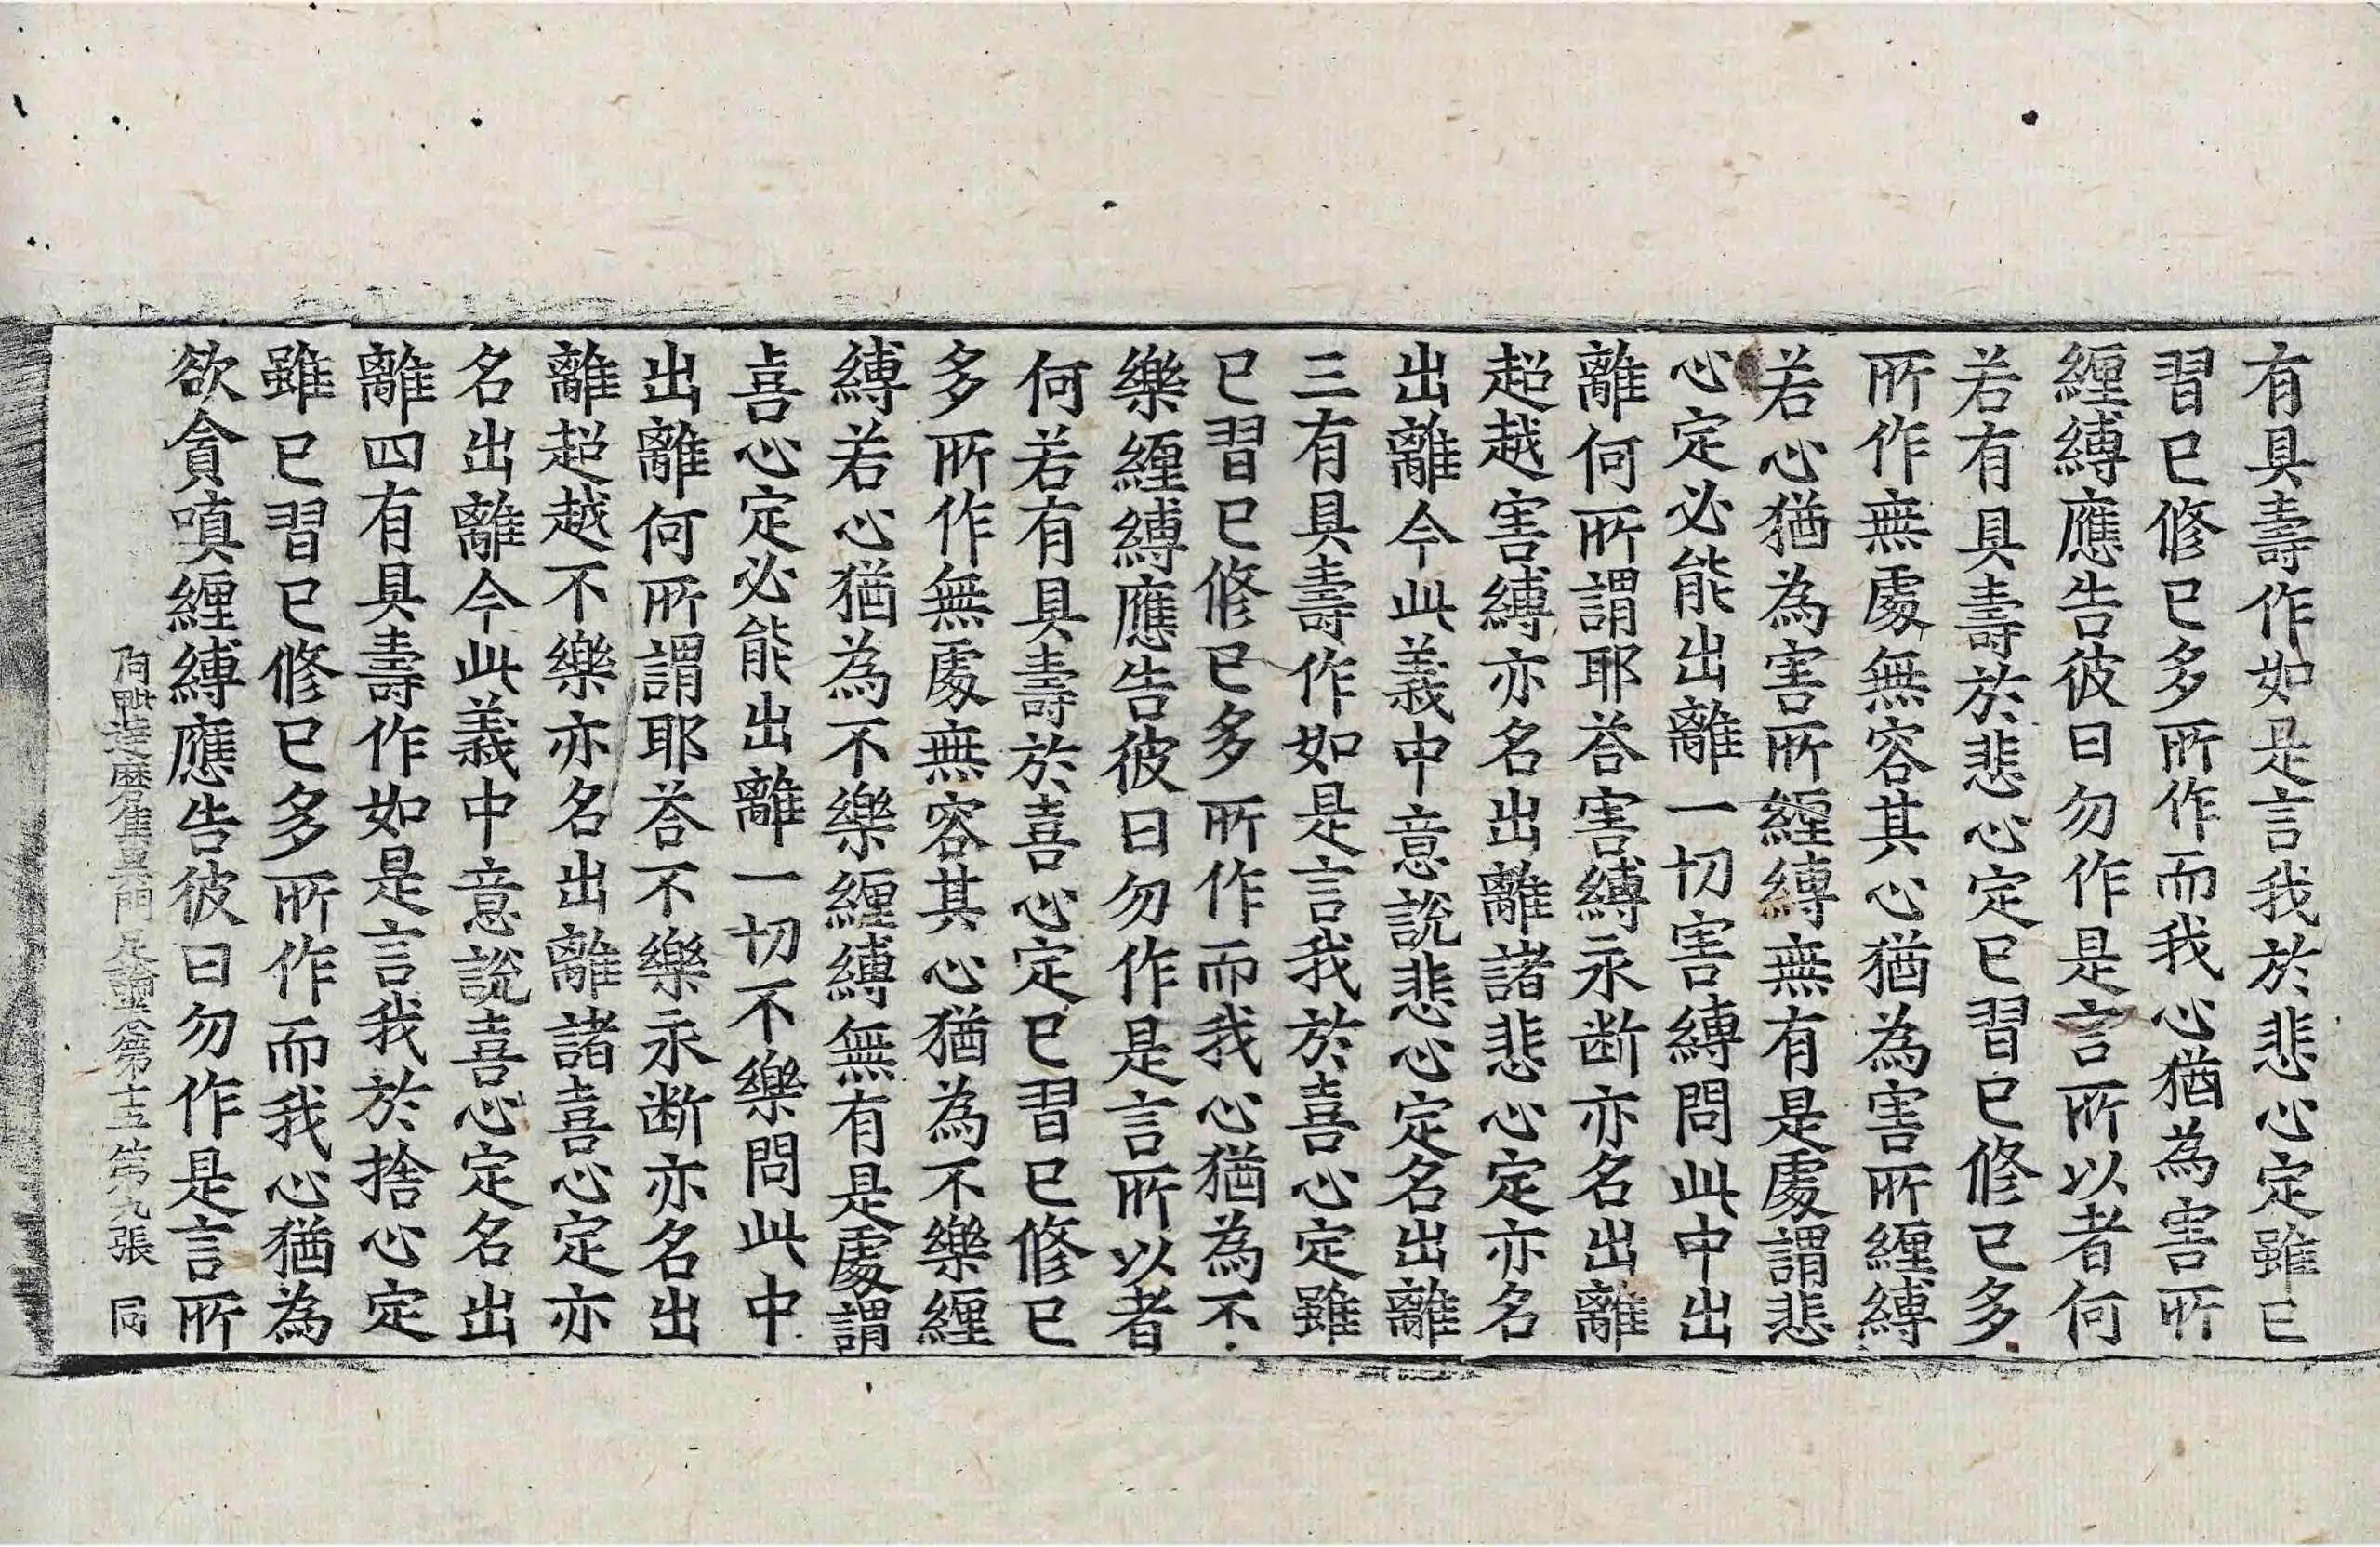 有具壽作如是言我於悲心定雖已
習已修已多所作而我心猶為害所
纏縛應告彼曰勿作是言所以者何
若有具壽於悲心定已習已修已多
所作無處無容其心猶為害所纏縛
若心猶為害所纏縛無有是處謂悲
心定必能出離一切害縛問此中出
離何所謂耶荅害縛永断亦名出離
超越害縛亦名出離諸悲心定亦名
出離今此義中意說悲心定名出離
三有具壽作如是言我於喜心定雖
已習已修已多所作而我心猶為不
樂纏縛應告彼曰勿作是言所以者
何若有具壽於喜心定已習已修已
多所作無處無容其心猶為不樂纏
縛若心猶為不樂纏縛無有是處謂
喜心定必能出離一切不樂問此中
出離何所謂耶荅不樂永断亦名出
離超越不樂亦名出離諸喜心定亦
名出離今此義中意說喜心定名出
離四有具壽作如是言我於捨心定
雖已習已修已多所作而我心猶為
欲貪嗔纏縛應告彼曰勿作是言所
阿毗達磨集異門足論卷第十五 第九張 同